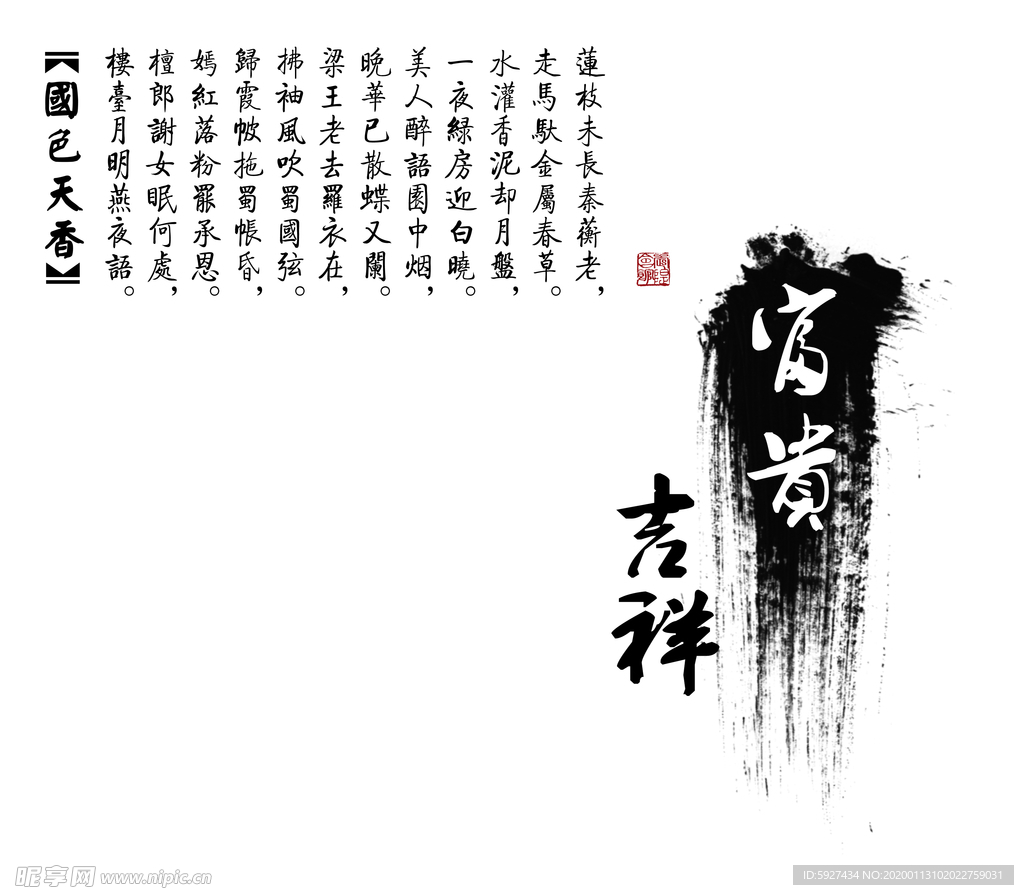 富貴
吉祥
蓮枝未長秦蘅老，
走馬馱金屬春草。
水灌香泥却月盤，
一夜綠房迎白曉。
美人醉語園中烟，
晚華已散蝶又闌。
梁王老去羅衣在，
拂袖風吹蜀國弦。
歸霞帔拖蜀帳昏，
嫣紅落粉罷承恩。
檀郎謝女眠何處，
樓臺月明燕夜語。
【國色天香】
昵享网 www.nipic.cn
ID:5927434 NO:20200113102022759031